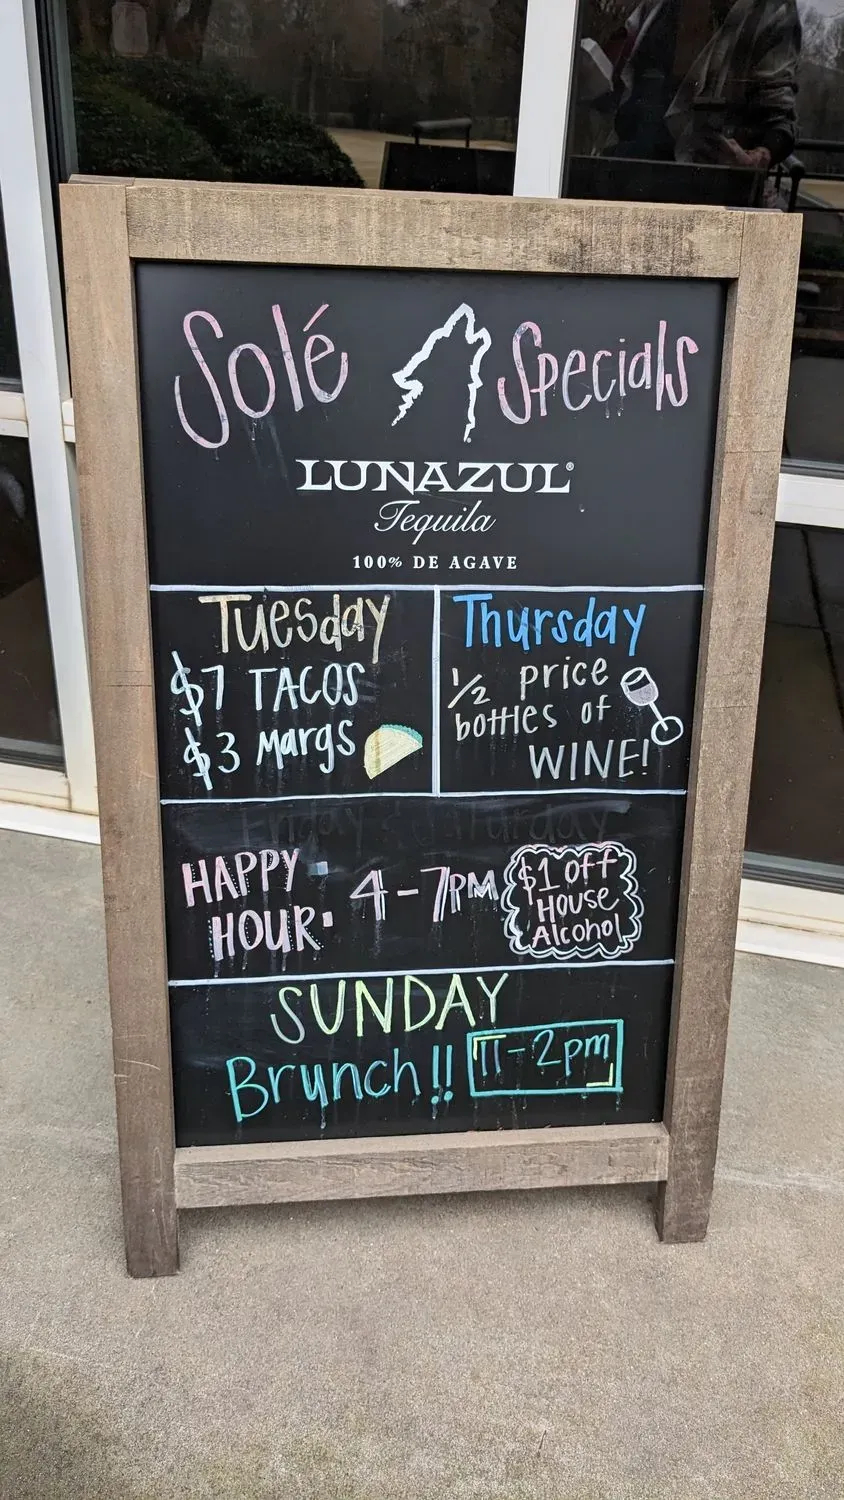 Solé Specials
LUNAZUL®
Tequila
100% DE AGAVE
Tuesday
$7 TACOS
$3 Margs
Thursday
1/2 price
bottles of
WINE!
Friday & Saturday
HAPPY
HOUR:
4-7PM
$1 off
House
Alcohol
SUNDAY
Brunch!!
11-2pm